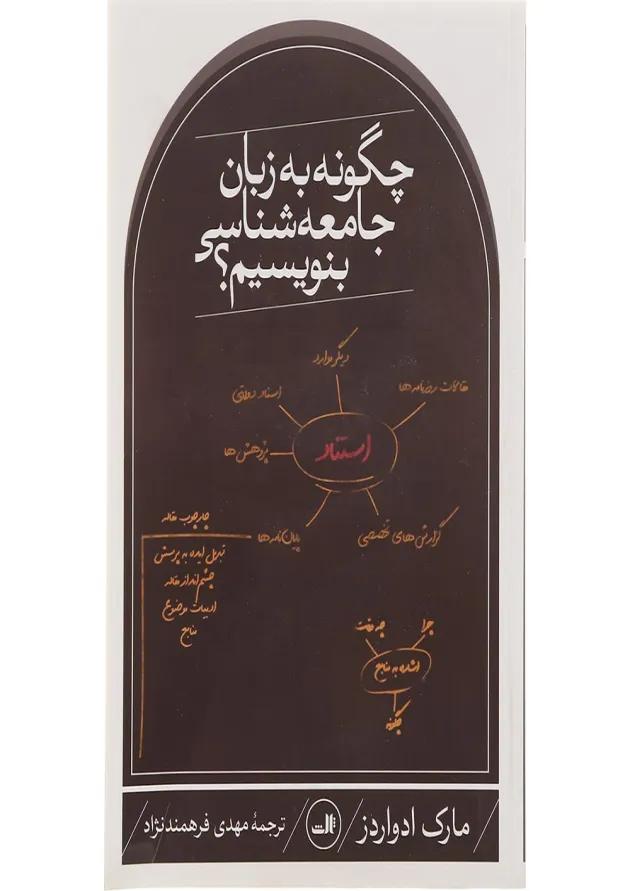 چگونه به زبان
جامعه‌شناسی
بنویسیم؟
دیگر موارد
مقالات روزنامه ها
اسناد دولتی
استناد
پژوهش ها
گزارش های تخصصی
پایان نامه ها
چارچوب مقاله
تبدیل ایده به پرسش
چشم انداز مقاله
ادبیات موضوع
منابع
چرا
چه وقت
اشاره به منابع
چگونه
مارک ادواردز
ثالث
ترجمهٔ مهدی فرهمندنژاد